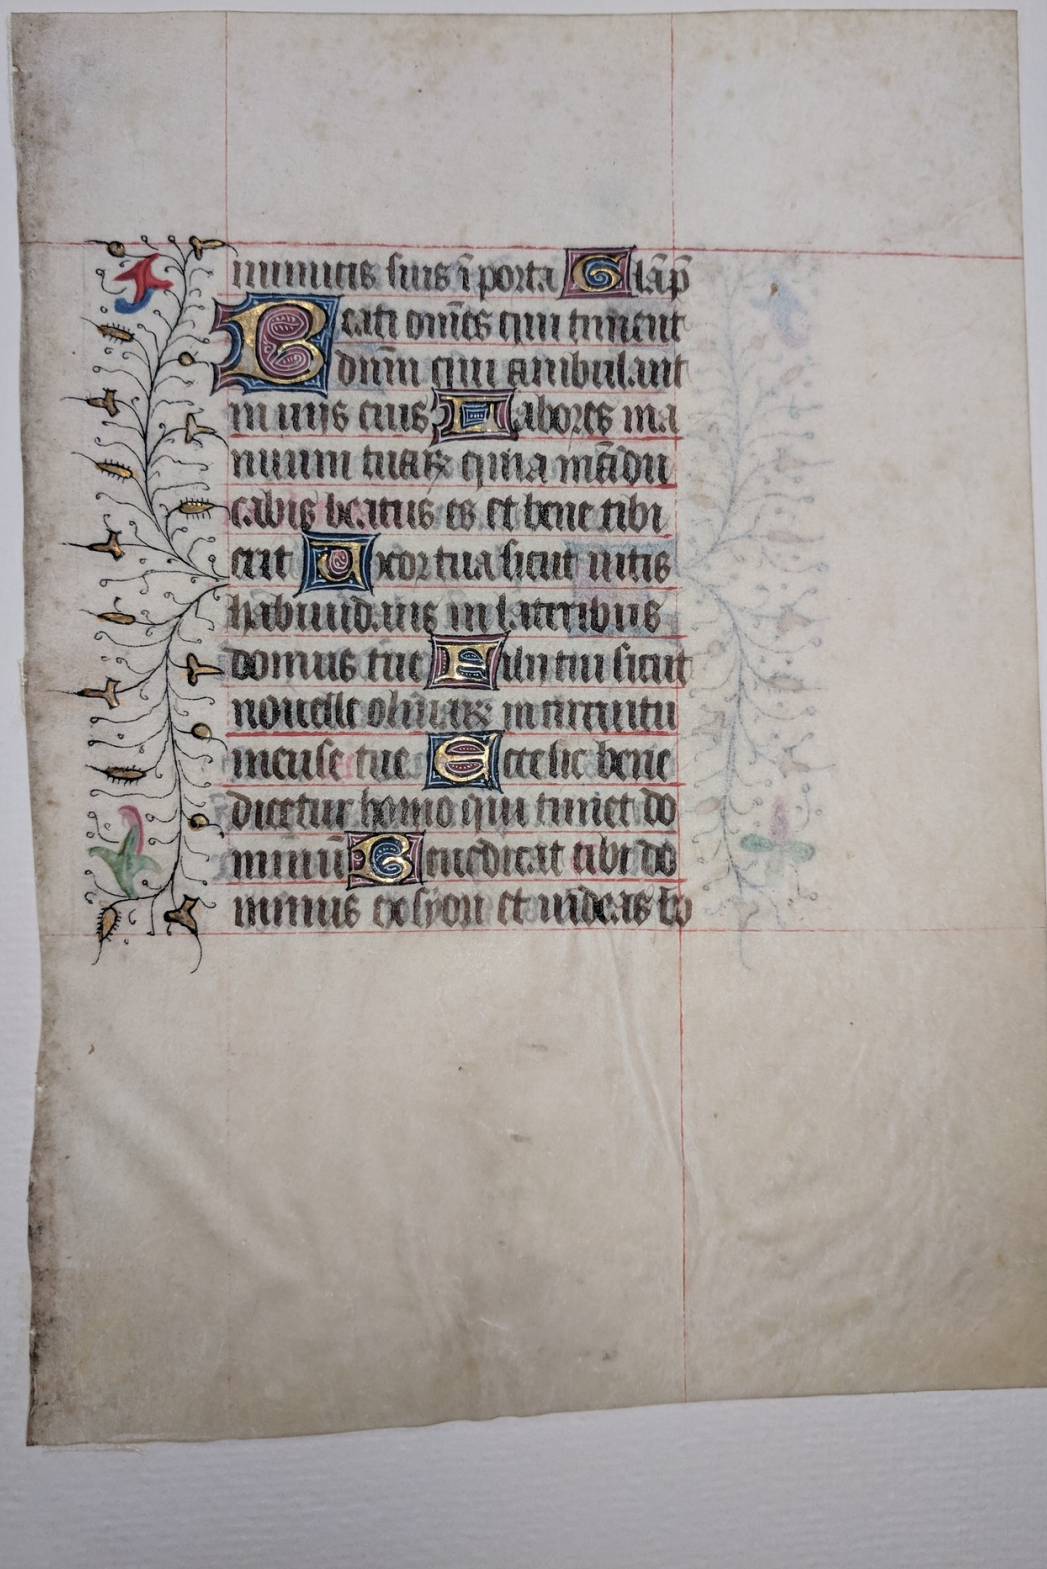 inimicis suis ī porta Glāp̄
Beati om̄es qui timent
dn̄m qui ambulant
in uijs eius Labores ma
nuum tuaꝝ quia mādu
cabis beatus es et bene tibi
erit Uxor tua sicut uitis
habundans in lateribus
domus tue Filij tui sicut
nouelle oliuaꝝ in circuitu
mense tue Ecce sic bene
dicetur homo qui timet do
minū Benedicat tibi do
minus ex syon et uideas bo